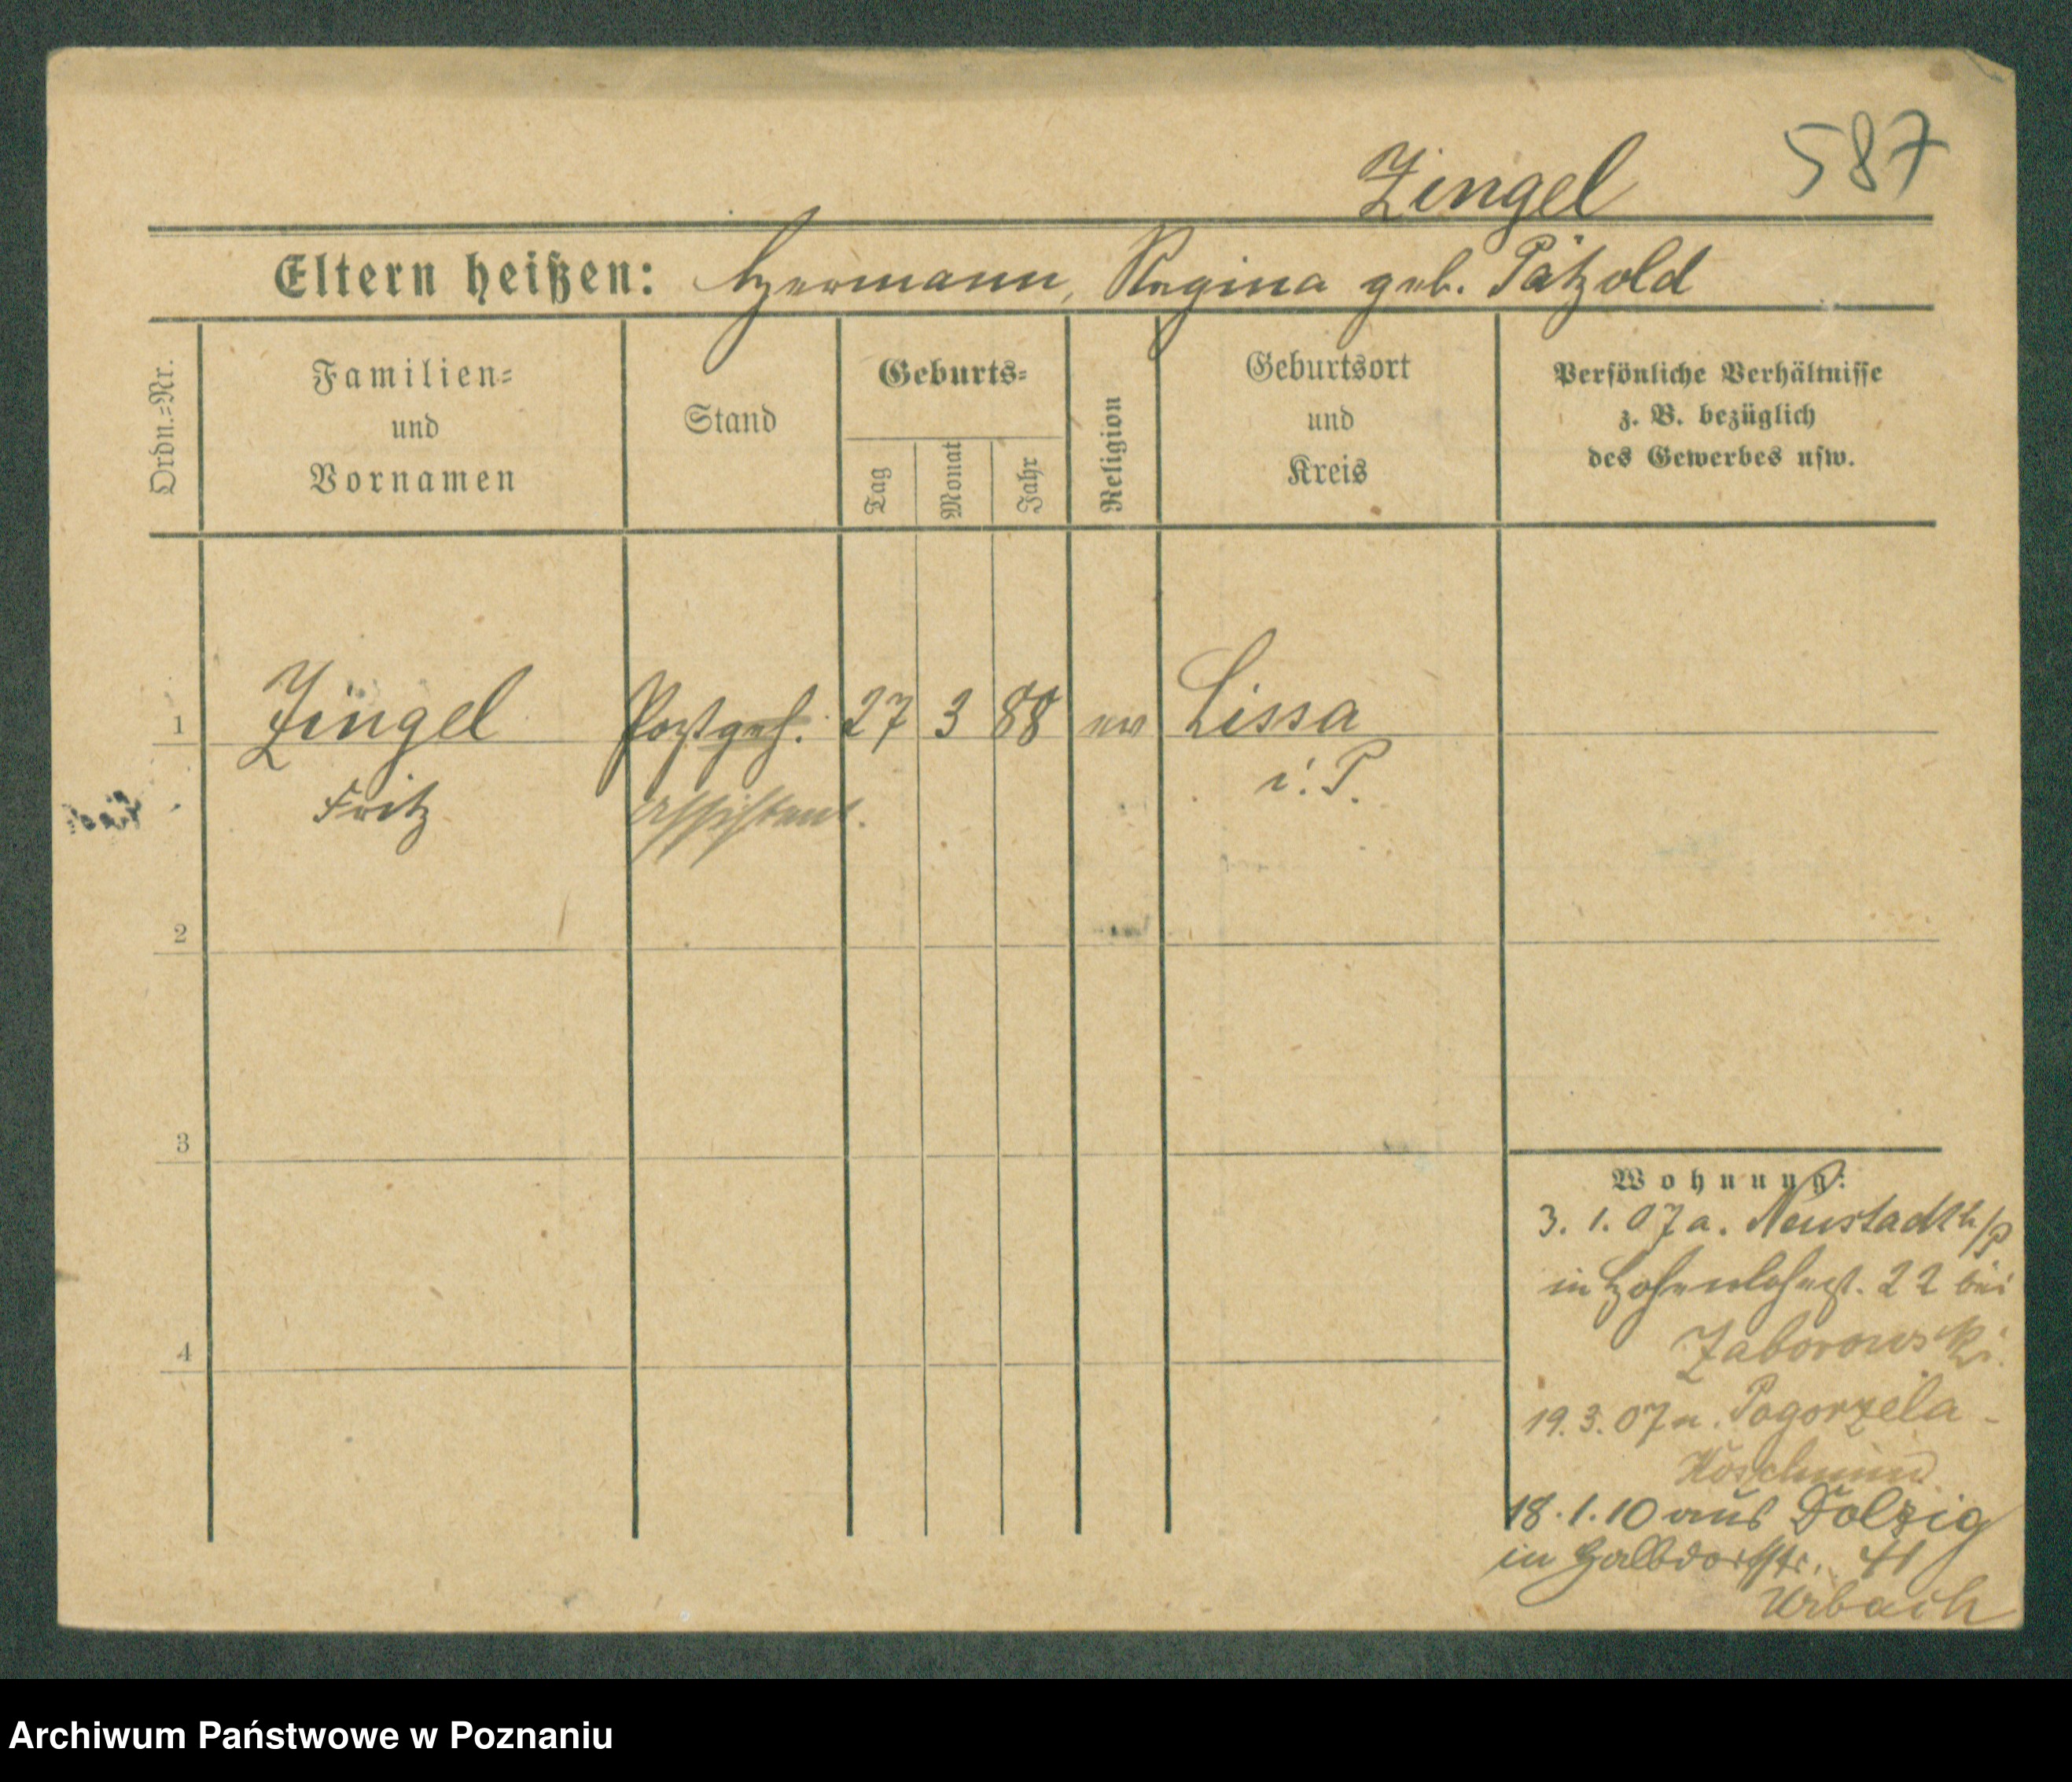 587
Zingel
Eltern heißen: Hermann, Regina geb. Pätzold
Ordn.-Nr.
Familien-
und
Vornamen
Stand
Geburts-
Tag
Monat
Jahr
Religion
Geburtsort
und
Kreis
Persönliche Verhältnisse
z. B. bezüglich
des Gewerbes usw.
1 Zingel Postgeh. 27 3 88 ev Lissa
Fritz Assistent. i. P.
2
3
4
Wohnung:
3. 1. 07 a. Neustadt b/P
in Hohenlohest. 22 bei
Zaborowski.
19. 3. 07 n. Pogorzela -
Koschmin
18. 1. 10 aus Dolzig
in Halbdorfstr. 41
Urbach
Archiwum Państwowe w Poznaniu